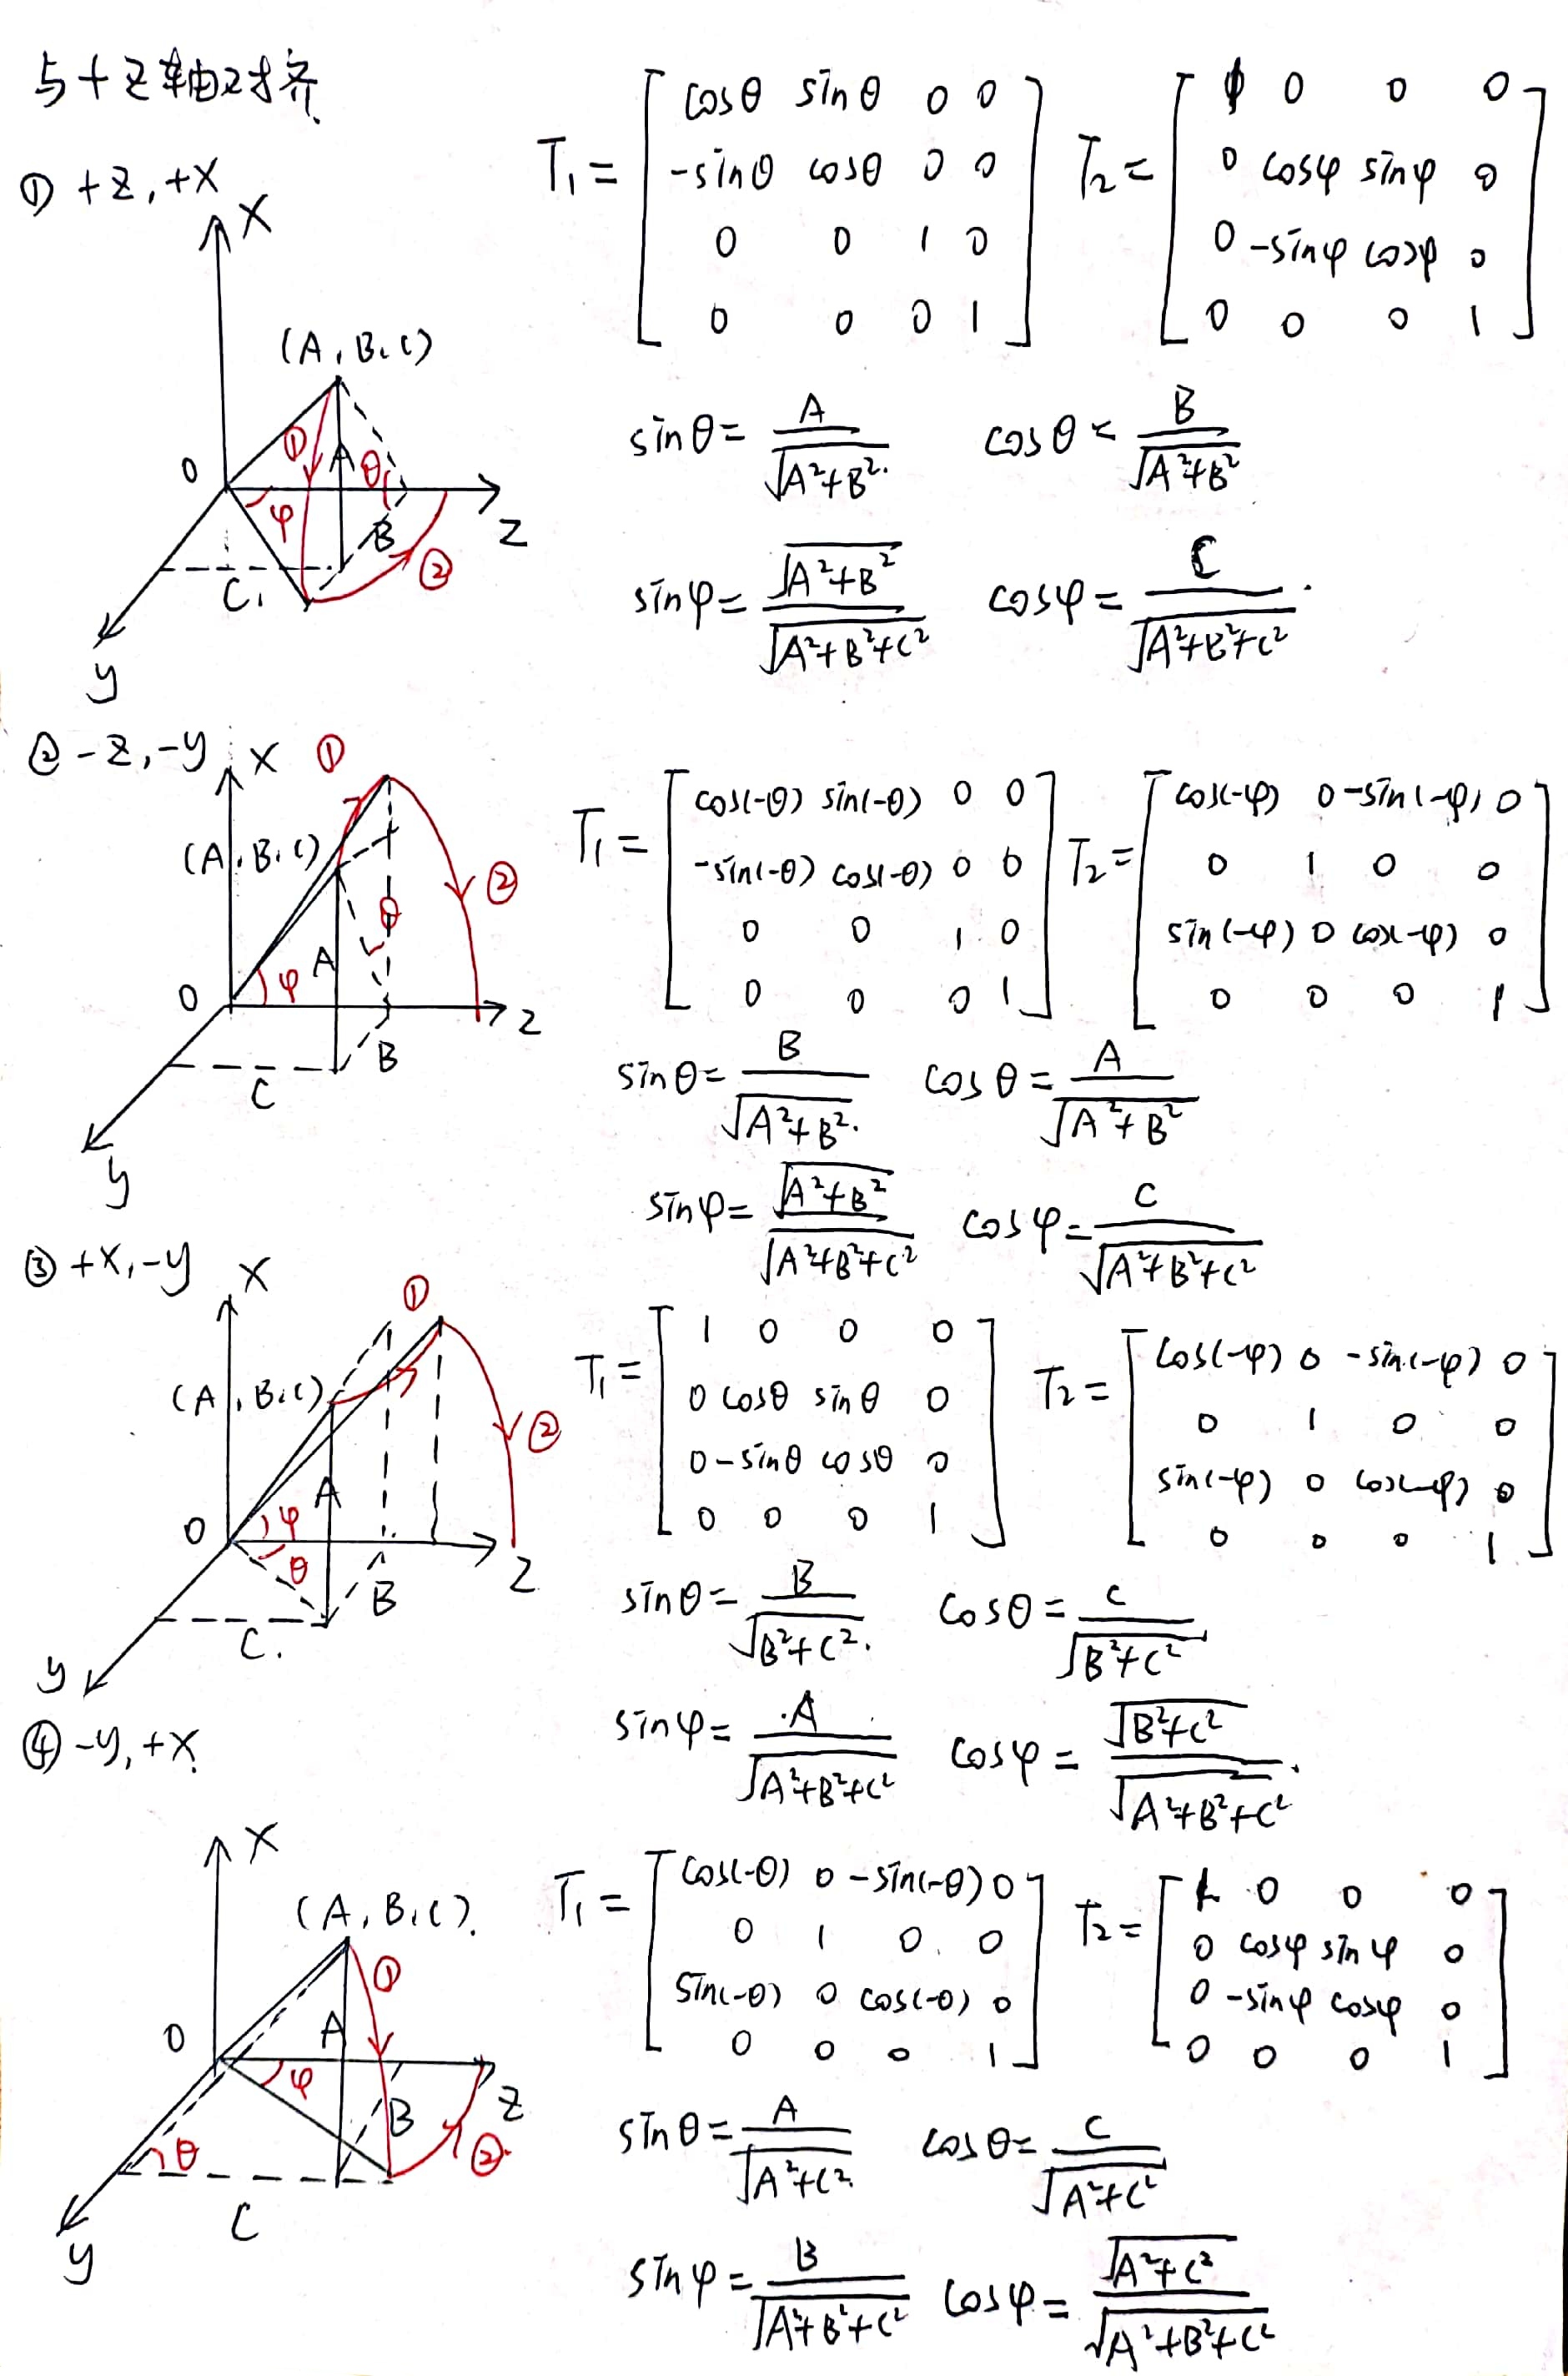 与+Z轴对齐
① +Z,+X
T₁ = [ cosθ sinθ 0 0
-sinθ cosθ 0 0
0 0 1 0
0 0 0 1 ]
T₂ = [ 1 0 0 0
0 cosφ sinφ 0
0 -sinφ cosφ 0
0 0 0 1 ]
X
(A,B,C)
① A θ
O φ B ② Z
C
y
sinθ = A/√(A²+B²) cosθ = B/√(A²+B²)
sinφ = √(A²+B²)/√(A²+B²+C²) cosφ = C/√(A²+B²+C²)
② -Z,-y
X ①
(A,B,C) ②
θ
O φ A Z
B
C
y
T₁ = [ cos(-θ) sin(-θ) 0 0
-sin(-θ) cos(-θ) 0 0
0 0 1 0
0 0 0 1 ]
T₂ = [ cos(-φ) 0 -sin(-φ) 0
0 1 0 0
sin(-φ) 0 cos(-φ) 0
0 0 0 1 ]
sinθ = B/√(A²+B²) cosθ = A/√(A²+B²)
sinφ = √(A²+B²)/√(A²+B²+C²) cosφ = C/√(A²+B²+C²)
③ +X,-y
X ①
(A,B,C) ②
A
O φ
θ B Z
C
y
T₁ = [ 1 0 0 0
0 cosθ sinθ 0
0 -sinθ cosθ 0
0 0 0 1 ]
T₂ = [ cos(-φ) 0 -sin(-φ) 0
0 1 0 0
sin(-φ) 0 cos(-φ) 0
0 0 0 1 ]
sinθ = B/√(B²+C²) cosθ = C/√(B²+C²)
sinφ = A/√(A²+B²+C²) cosφ = √(B²+C²)/√(A²+B²+C²)
④ -y,+X
X
(A,B,C)
①
O A
φ B Z
θ ②
C
y
T₁ = [ cos(-θ) 0 -sin(-θ) 0
0 1 0 0
sin(-θ) 0 cos(-θ) 0
0 0 0 1 ]
T₂ = [ 1 0 0 0
0 cosφ sinφ 0
0 -sinφ cosφ 0
0 0 0 1 ]
sinθ = A/√(A²+C²) cosθ = C/√(A²+C²)
sinφ = B/√(A²+B²+C²) cosφ = √(A²+C²)/√(A²+B²+C²)